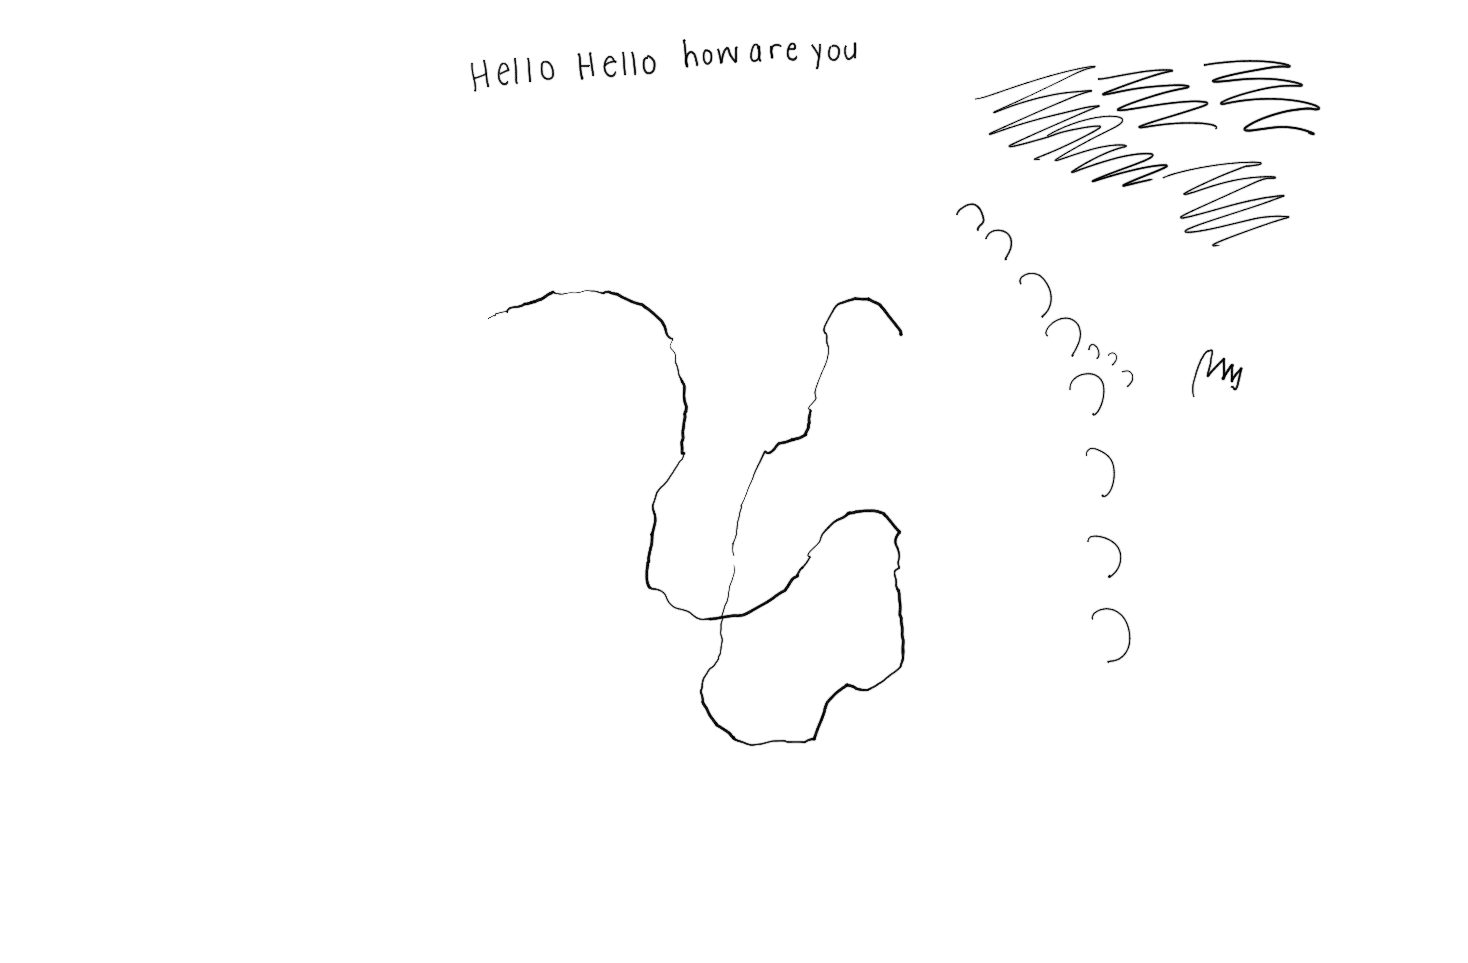 Hello Hello how are you